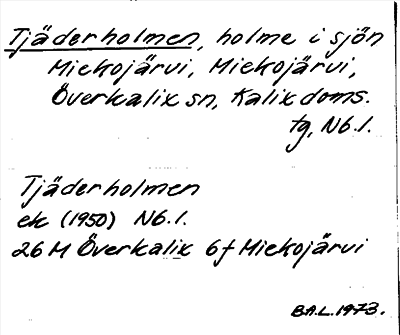 Tjäderholmen, holme i sjön
Miekojärvi, Miekojärvi,
Överkalix sn, Kalix doms.
tg, Nb.l.
Tjäderholmen
ek (1950) Nb.l.
26 M Överkalix 6f Miekojärvi
B.A.L. 1973.